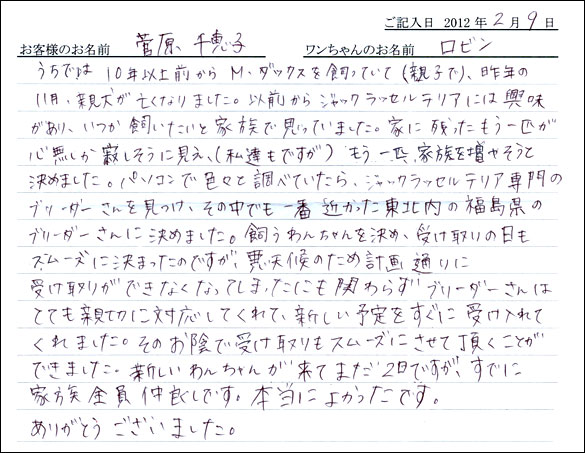 ご記入日 2012年2月9日
お客様のお名前 菅原 千恵子 ワンちゃんのお名前 ロビン
うちでは 10年以上前から M・ダックスを飼っていて(親子で)、昨年の
11月、親犬が亡くなりました。以前からジャックラッセルテリアには興味
があり、いつか飼いたいと家族で思っていました。家に残ったもう一匹が
心無しか寂しそうに見え、(私達もですが) もう一匹、家族を増やそうと
決めました。パソコンで色々と調べていたら、ジャックラッセルテリア専門の
ブリーダーさんを見つけ、その中でも一番近かった東北内の福島県の
ブリーダーさんに決めました。飼うわんちゃんを決め、受け取りの日も
スムーズに決まったのですが、悪天候のため計画通りに
受け取りができなくなってしまったにも関わらずブリーダーさんは
とても親切に対応してくれて、新しい予定をすぐに受け入れて
くれました。そのお陰で受け取りもスムーズにさせて頂くことが
できました。新しいわんちゃんが来てまだ2日ですが、すでに
家族全員仲良しです。本当によかったです。
ありがとうございました。